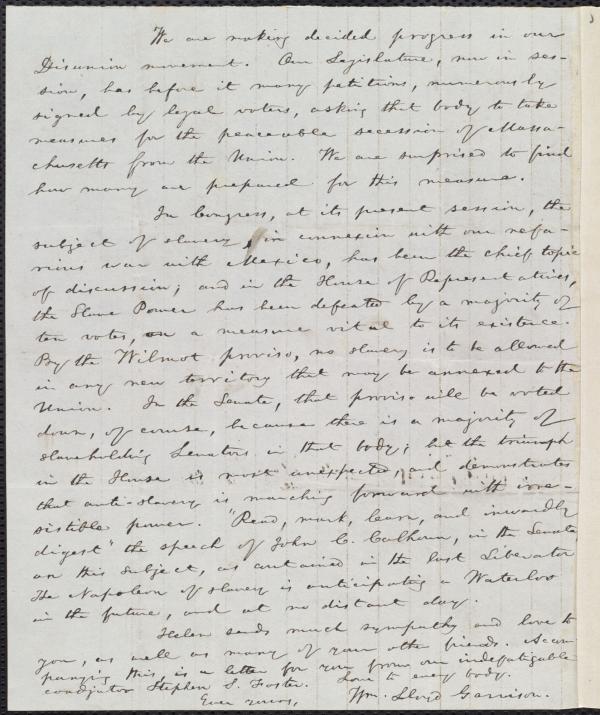 We are making decided progress in our
Disunion movement. Our Legislature, now in ses-
sion, has before it many petitions, numerously
signed by legal voters, asking that body to take
measures for the peaceable secession of Massa-
chusetts from the Union. We are surprised to find
how many are prepared for this measure.
In Congress, at its present session, the
subject of slavery, in connexion with our nefa-
rious war with Mexico, has been the chief topic
of discussion; and in the House of Representatives,
the Slave Power has been defeated by a majority of
ten votes, on a measure vital to its existence.
By the Wilmot proviso, no slavery is to be allowed
in any new territory that may be annexed to the
Union. In the Senate, that proviso will be voted
down, of course, because there is a majority of
slaveholding Senators in that body; but the triumph
in the House is most unexpected, and demonstrates
that anti-slavery is marching forward with irre-
sistible power. "Read, mark, learn, and inwardly
digest" the speech of John C. Calhoun, in the Senate,
on this subject, as contained in the last Liberator
The Napoleon of slavery is anticipating a Waterloo
in the future, and at no distant day.
Helen sends much sympathy and love to
you, as well as many of your other friends. Accom-
panying this, is a letter for you from our indefatigable
coadjutor Stephen S. Foster. Love to every body.
Ever yours, Wm. Lloyd Garrison.